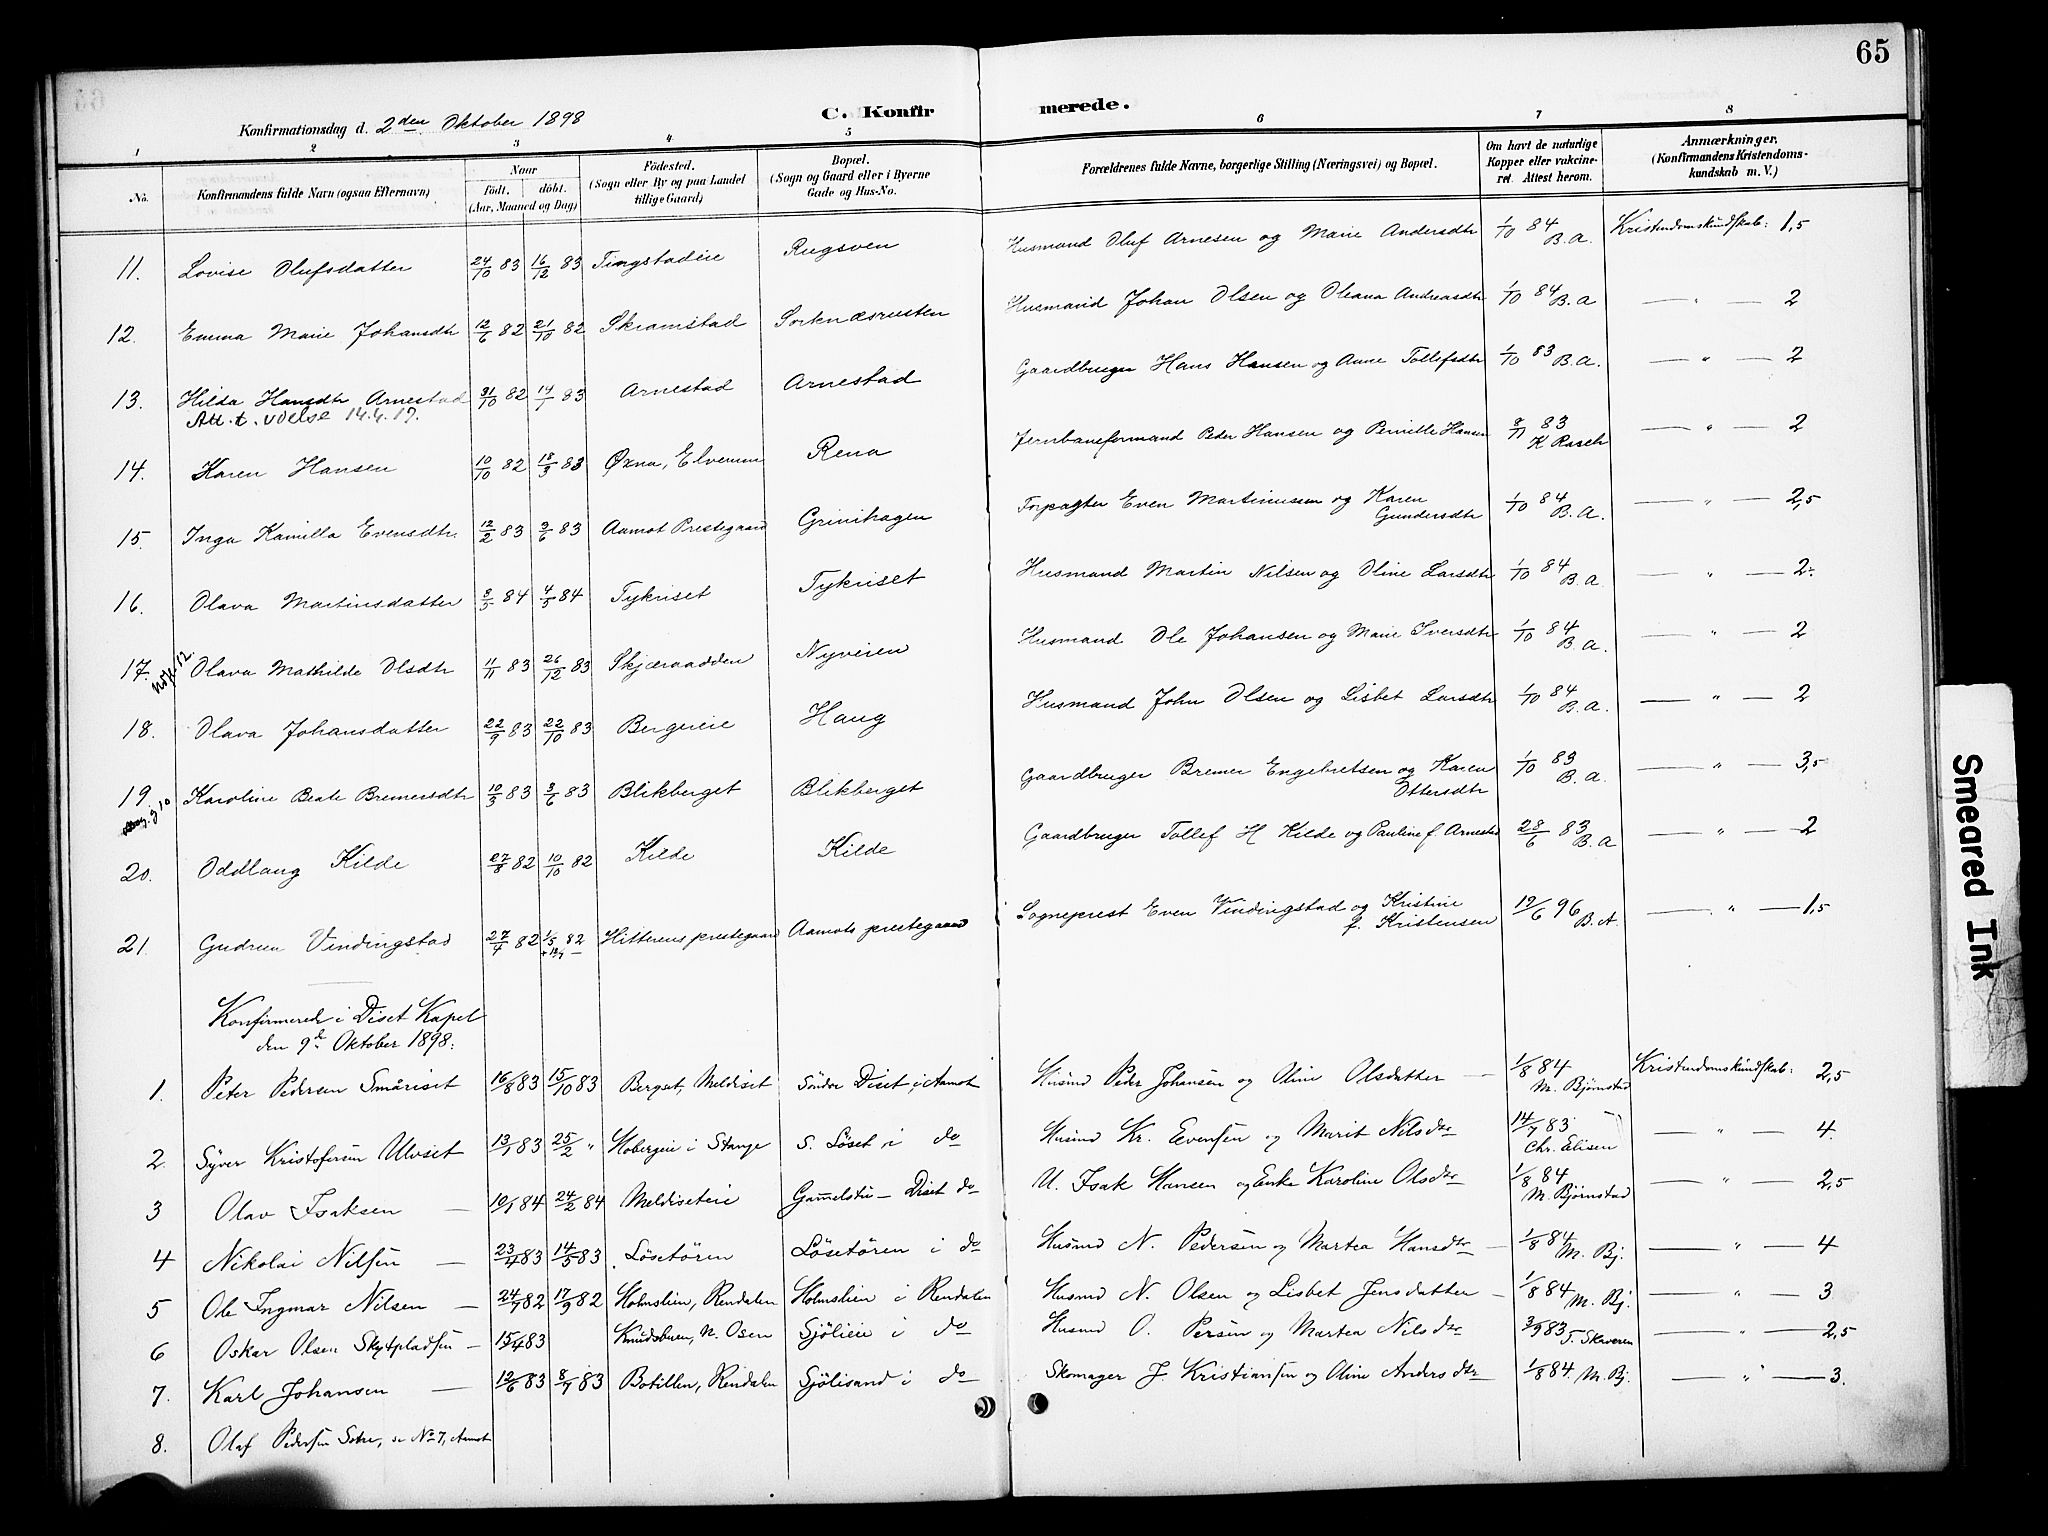 65
Konfirmationsdag d. 2den Oktober 1898
C. Konfirmerede.
1 2 3 4 5 6 7 8
No. Konfirmandens fulde Navn (ogsaa Efternavn) Naar født. døbt. (Aar, Maaned og Dag) Fødested. (Sogn eller By og paa Landet tillige Gaard) Bopæl. (Sogn og Gaard eller i Byerne Gade og Hus-No. Forældrenes fulde Navne, borgerlige Stilling (Næringsvei) og Bopæl. Om havt de naturlige Kopper eller vakcineret. Attest herom. Anmærkninger. (Konfirmandens Kristendomskundskab m. V.)
11. Lovise Olufsdatter 24/10 83 16/12 83 Tingstadeie Rugsven Husmand Oluf Arnesen og Marie Andersdtr 1/10 84 B.A. Kristendomskundskab: 1,5
12. Emma Marie Johansdtr 12/6 82 21/10 82 Skramstad Sorknæsrusten Husmand Johan Olsen og Oleana Andreasdtr 1/10 84 B.A — " — 2
13. Hilda Hansdtr Arnestad 31/10 82 14/1 83 Arnestad Arnestad Gaardbruger Hans Hansen og Anne Tollefsdtr 1/10 83 B.A. — " — 2
Att. t. vielse 14.4.17.
14. Karen Hansen 10/10 82 18/3 83 Øxna, Elverum Rena Jernbaneformand Peder Hansen og Pernille Hansen 8/11 83 K Rasch — " — 2
15. Inga Kamilla Evensdtr. 12/2 83 3/6 83 Aamot Prestegaard Grinihagen Forpagter Even Martinussen og Karen Gundersdtr 1/10 84 B.A. — " — 2,5
16. Olava Martinsdatter 8/3 84 4/5 84 Tykriset Tykriset Husmand Martin Nilsen og Oline Larsdtr 1/10 84 B.A. — " — 2.
17. Olava Mathilde Olsdtr 11/11 83 26/12 83 Skjæraadden Nyveien Husmand Ole Johansen og Marie Iversdtr 1/10 84 B.A. — " — 2
18. Olava Johansdatter 22/9 83 22/10 83 Bergereie Haug Husmand John Olsen og Lisbet Larsdtr 1/10 84 B.A. — " — 2
19. Karoline Beate Bremersdtr 10/3 83 3/6 83 Blikberget Blikberget Gaardbruger Bremer Engebretsen og Karen Ottersdtr 1/10 83 B.A. — " — 3,5
20. Oddlaug Kilde 27/8 82 10/10 82 Kilde Kilde Gaardbruger Tollef H Kilde og Pauline f. Arnestad 28/6 83 B.A — " — 2
21. Gudrun Vindingstad 27/4 82 1/5 82 Hitterens prestegaard Aamots prestegaard Sogneprest Even Vindingstad og Kristine f. Kristensen 19/6 96 B.A. — " — 1,5
Konfirmerede i Diset Kapel
den 9de Oktober 1898.
1. Peter Pedersen Småriset 16/8 83 15/10 83 Berget, Meldiset Söndre Diset i Aamot Husmd Peder Johansen og Oline Olsdatter — 1/8 84 M. Bjørnstad Kristendomskundskab: 2,5
2. Syver Kristofersen Ulvset 13/1 83 25/2 " Hobergeie i Stange S. Löset i do Husmd Kr. Evensen og Marit Nilsdtr 14/7 83 Chr. Elisen — " — 4.
3 Olav Isaksen — 10/1 84 24/2 84 Meldiseteie Gammelstu — Diset do U. Isak Hansen og Enke Karoline Olsdtr 1/8 84 M. Bjørnstad — " — 2,5
4 Nikolai Nilsen — 23/4 83 14/5 83 Løsetören Löseetören i do Husmd N. Pedersen og Martea Hansdtr — 1/8 84 M. Bj. — " — 4
5 Ole Ingmar Nilsen — 24/7 82 17/9 82 Holmslien, Rendalen Holmslien i Rendalen Husmd N. Olsen og Lisbet Jensdatter — 1/8 84 M. Bj. — " — 3
6 Oskar Olsen Skytpladsen — 15/4 83 Knudsbuen, N. Osen Sjölieie i do Husmd O. Persen og Martea Nilsdtr 3/9 83 — " — 2,5
7. Karl Johansen — 12/6 83 8/7 83 Botillen, Rendalen Sjölisand i do Skomager J. Kristiansen og Oline Andersdtr 1/8 84. M. Bj. — " — 3.
8. Olaf Pedersen Sotre, se No 7, Aamot
Smeared Ink